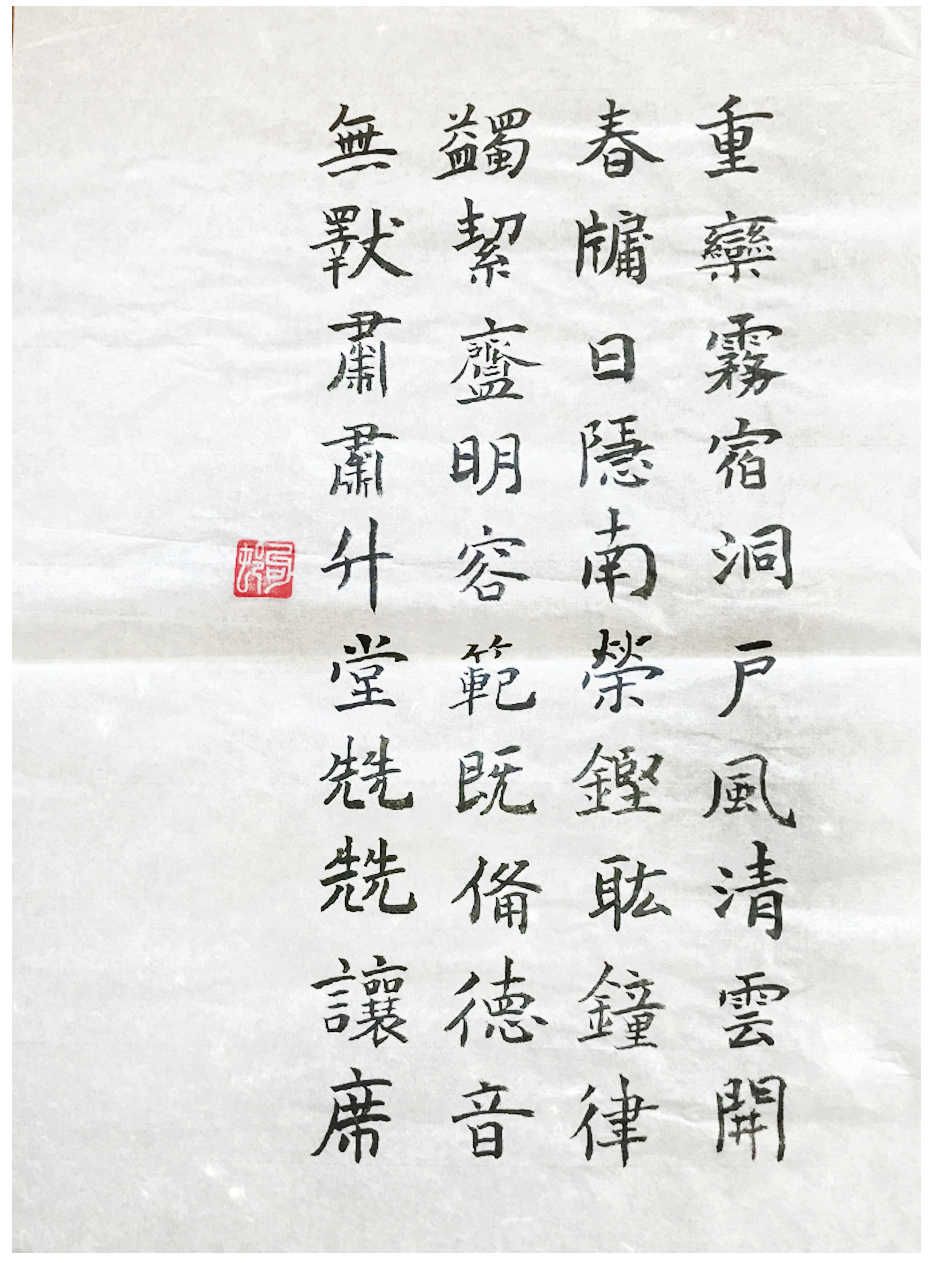 重欒霧宿洞户風清雲開
春牖日隱南榮鏗耾鐘律
蠲絜齍明容範既俻德音
無斁肅肅升堂兟兟讓席